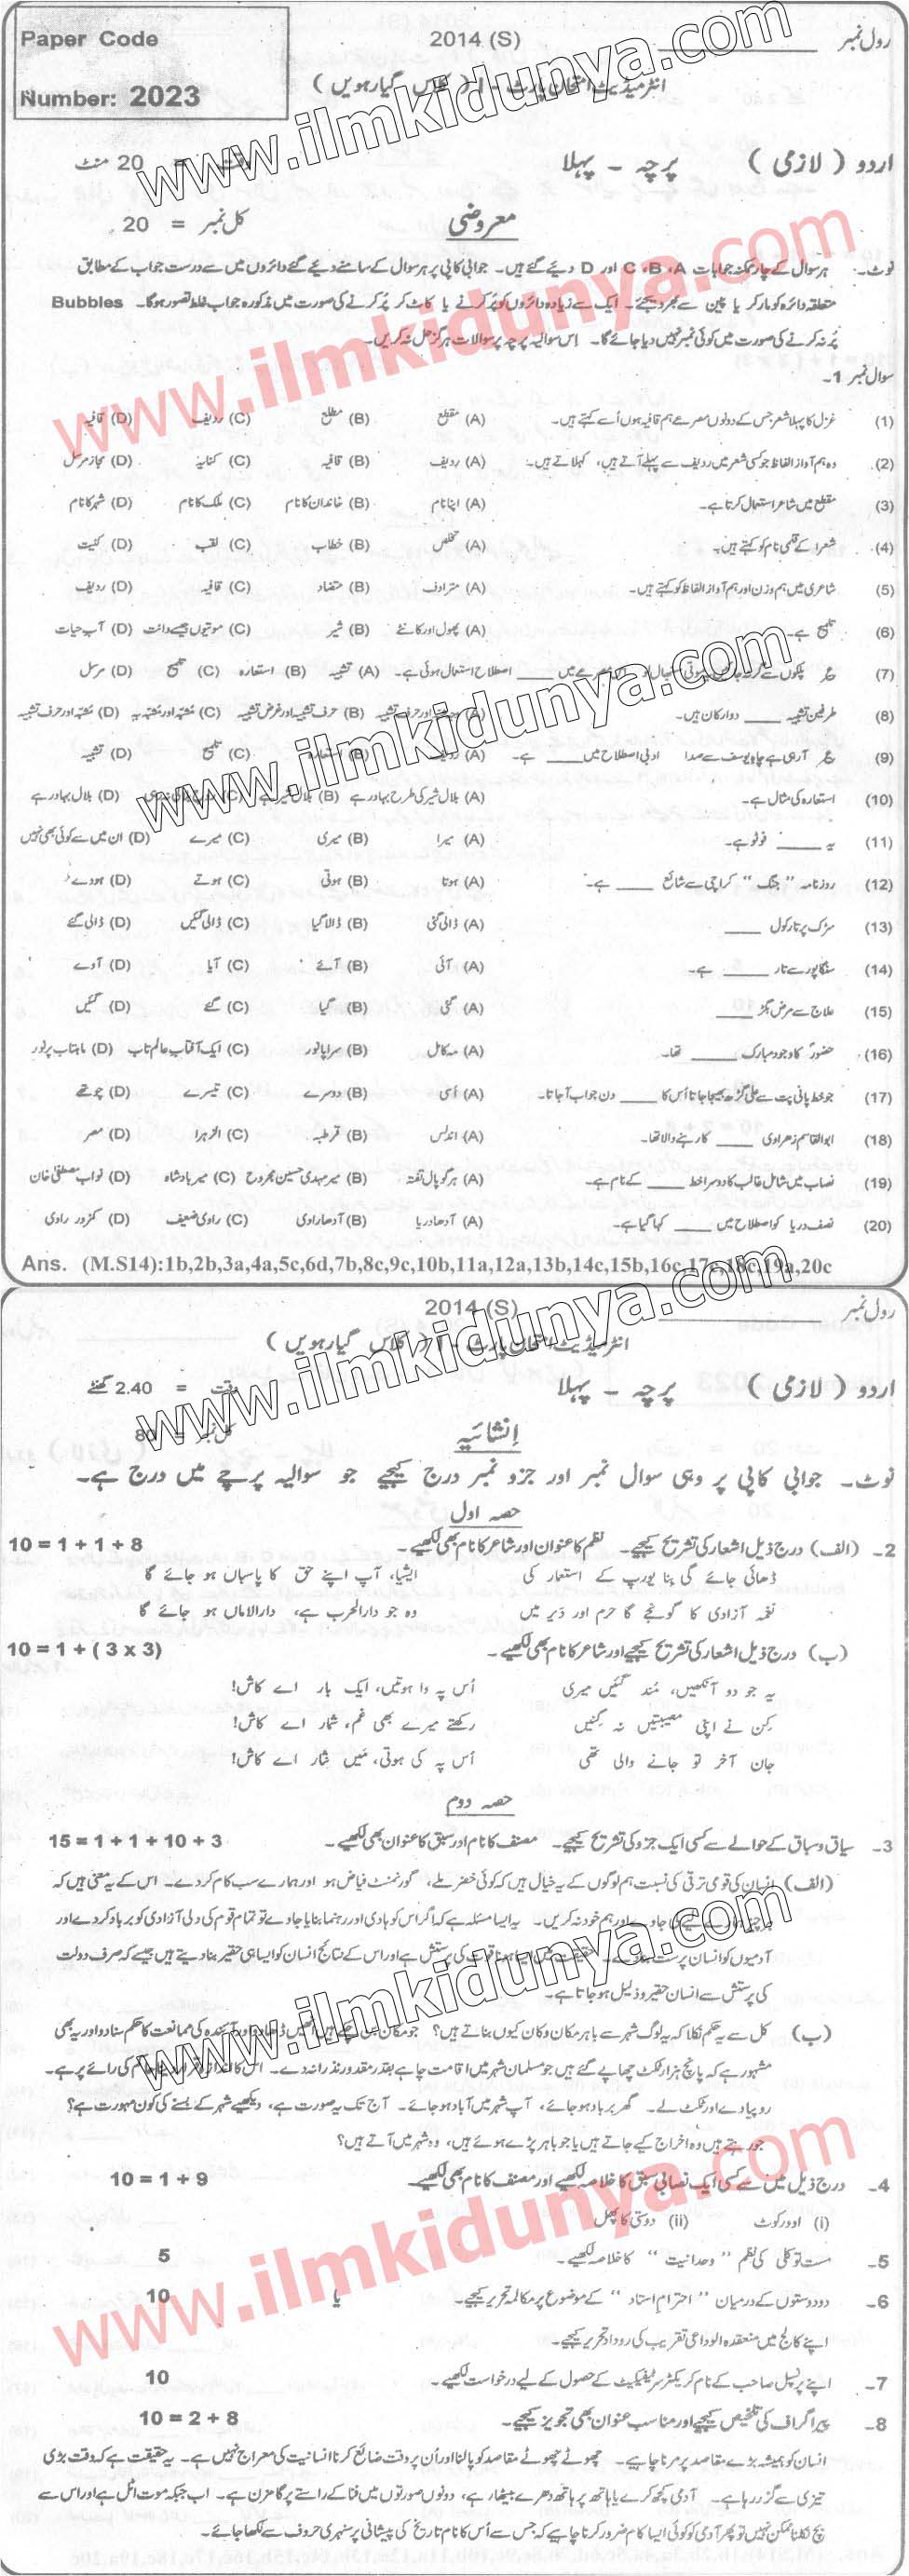 Paper Code
Number: 2023
2014 (S)
رول نمبر
انٹرمیڈیٹ امتحان پارٹ - I ( کلاس گیارہویں )
اردو ( لازمی ) پرچہ - پہلا
وقت = 20 منٹ
معروضی
کل نمبر = 20
نوٹ۔ ہر سوال کے چار ممکنہ جوابات A، B، C اور D دیئے گئے ہیں۔ جوابی کاپی پر ہر سوال کے سامنے دیئے گئے دائروں میں سے درست جواب کے مطابق
متعلقہ دائرہ کو مارکر یا پین سے بھر دیجئے۔ ایک سے زیادہ دائروں کو پُر کرنے یا کاٹ کر پُر کرنے کی صورت میں مذکورہ جواب غلط تصور ہوگا۔ Bubbles
پُر نہ کرنے کی صورت میں کوئی نمبر نہیں دیا جائے گا۔ اس سوالیہ پرچہ پر سوالات ہرگز حل نہ کریں۔
سوال نمبر 1۔
(1) غزل کا پہلا شعر جس کے دونوں مصرعے ہم قافیہ ہوں اُسے کہتے ہیں۔ (A) مقطع (B) مطلع (C) ردیف (D) قافیہ
(2) وہ ہم آواز الفاظ جو کسی شعر میں ردیف سے پہلے آتے ہیں، کہلاتے ہیں۔ (A) ردیف (B) قافیہ (C) کنایہ (D) مجاز مرسل
(3) مقطع میں شاعر استعمال کرتا ہے۔ (A) اپنا نام (B) خاندان کا نام (C) ملک کا نام (D) شہر کا نام
(4) شعرا کے قلمی نام کو کہتے ہیں۔ (A) تخلص (B) خطاب (C) لقب (D) کنیت
(5) شاعری میں ہم وزن اور ہم آواز الفاظ کو کہتے ہیں۔ (A) مترادف (B) متضاد (C) قافیہ (D) ردیف
(6) تلمیح ہے۔ (A) پھول اور کانٹے (B) شیر (C) موتیوں جیسے دانت (D) آب حیات
(7) ع پلکوں سے گر نہ جائیں موتی سنبھال لو اس مصرعے میں ____ اصطلاح استعمال ہوئی ہے۔ (A) تشبیہ (B) استعارہ (C) تلمیح (D) مرسل
(8) طرفین تشبیہ ____ دو ارکان ہیں۔ (A) اور حرف تشبیہ (B) حرف تشبیہ اور غرض تشبیہ (C) مشبہ اور مشبہ بہ (D) مشبہ اور حرف تشبیہ
(9) ع آ رہی ہے چاہ یوسف سے صدا ادبی اصطلاح میں ____ ہے۔ (A) ردیف (B) استعارہ (C) تلمیح (D) تشبیہ
(10) استعارہ کی مثال ہے۔ (A) بلال شیر کی طرح بہادر ہے (B) بلال شیر ہے (C) (D) بلال بہادر ہے
(11) یہ ____ فوٹو ہے۔ (A) میرا (B) میری (C) میرے (D) ان میں سے کوئی بھی نہیں
(12) روزنامہ "جنگ" کراچی سے شائع ____ ہے۔ (A) ہوتا (B) ہوتی (C) ہوتے (D) ہووے
(13) سڑک پر تارکول ____ (A) ڈالی گئی (B) ڈالا گیا (C) ڈالی گئیں (D) ڈالی گئے
(14) سنگاپور سے تار ____ ہے۔ (A) آئی (B) آئے (C) آیا (D) آوے
(15) علاج سے مرض بگڑ ____ (A) گئی (B) گیا (C) گئے (D) گئیں
(16) حضورؐ کا وجود مبارک ____ تھا۔ (A) مہ کامل (B) سراپا نور (C) ایک آفتاب عالم تاب (D) ماہتاب پرنور
(17) جو خط پانی پت سے علی گڑھ بھیجا جاتا اُس کا ____ دن جواب آ جاتا۔ (A) اُسی (B) دوسرے (C) تیسرے (D) چوتھے
(18) ابوالقاسم زہراوی ____ کا رہنے والا تھا۔ (A) اندلس (B) قرطبہ (C) الزہرا (D) مصر
(19) نصاب میں شامل غالب کا دوسرا خط ____ کے نام ہے۔ (A) ہرگوپال تفتہ (B) میر مہدی حسین مجروح (C) میر بادشاہ (D) نواب مصطفیٰ خان
(20) نصف دریا کو اصطلاح میں ____ کہا گیا ہے۔ (A) آدھا دریا (B) آدھا راوی (C) راوی ضعیف (D) کمزور راوی
Ans. (M.S14):1b,2b,3a,4a,5c,6d,7b,8c,9c,10b,11a,12a,13b,14c,15b,16c,17c,18c,19a,20c
2014 (S)
رول نمبر
انٹرمیڈیٹ امتحان پارٹ - I ( کلاس گیارہویں )
اردو ( لازمی ) پرچہ - پہلا
وقت = 2.40 گھنٹے
انشائیہ
کل نمبر = 80
نوٹ۔ جوابی کاپی پر وہی سوال نمبر اور جزو نمبر درج کیجیے جو سوالیہ پرچے میں درج ہے۔
حصہ اول
2۔ (الف) درج ذیل اشعار کی تشریح کیجیے۔ نظم کا عنوان اور شاعر کا نام بھی لکھیے۔ 10 = 1 + 1 + 8
ڈھائی جائے گی بنا یورپ کے استعمار کی ایشیا، آپ اپنے حق کا پاسباں ہو جائے گا
نغمہ آزادی کا گونجے گا حرم اور دَیر میں وہ جو دارالحرب ہے، دارالاماں ہو جائے گا
(ب) درج ذیل اشعار کی تشریح کیجیے اور شاعر کا نام بھی لکھیے۔ 10 = 1 + ( 3 x 3)
یہ جو دو آنکھیں، مُند گئیں میری اُس پہ وا ہوتیں، ایک بار اے کاش!
کِن نے اپنی مصیبتیں نہ گِنیں رکھتے میرے بھی غم، شمار اے کاش!
جان آخر تو جانے والی تھی اُس پہ کی ہوتی، مَیں نثار اے کاش!
حصہ دوم
3۔ سیاق و سباق کے حوالے سے کسی ایک جزو کی تشریح کیجیے۔ مصنف کا نام اور سبق کا عنوان بھی لکھیے۔ 15 = 1 + 1 + 10 + 3
(الف) انسان کی قومی ترقی کی نسبت ہم لوگوں کے یہ خیال ہیں کہ کوئی خضر ملے، گورنمنٹ فیاض ہو اور ہمارے سب کام کر دے۔ اس کے یہ معنی ہیں کہ
ہر چیز ہمارے لیے کی جاوے اور ہم خود نہ کریں۔ یہ ایسا مسئلہ ہے کہ اگر اس کو ہادی اور رہنما بنایا جاوے تو تمام قوم کی دلی آزادی کو برباد کر دے اور
آدمیوں کو انسان پرست بنا دے۔ حقیقت میں ایسا ہونا قوت کی پرستش ہے اور اس کے نتائج انسان کو ایسا ہی حقیر بنا دیتے ہیں جیسے کہ صرف دولت
کی پرستش سے انسان حقیر و ذلیل ہو جاتا ہے۔
(ب) کل سے یہ حکم نکلا کہ یہ لوگ شہر سے باہر مکان و کان کیوں بناتے ہیں؟ جو مکان بن چکے ہیں اُنھیں ڈھا دو اور آئندہ کی ممانعت کا حکم سنا دو اور یہ بھی
مشہور ہے کہ پانچ ہزار ٹکٹ چھاپے گئے ہیں جو مسلمان شہر میں اقامت چاہے بقدر مقدور نذرانہ دے۔ اس کا اندازہ قرار دینا حاکم کی رائے پر ہے۔
روپیا دے اور ٹکٹ لے۔ گھر برباد ہو جائے، آپ شہر میں آباد ہو جائے۔ آج تک یہ صورت ہے، دیکھیے شہر کے بسنے کی کون مہورت ہے؟
جو رہتے ہیں وہ اخراج کیے جاتے ہیں یا جو باہر پڑے ہوئے ہیں، وہ شہر میں آتے ہیں؟
4۔ درج ذیل میں سے کسی ایک نصابی سبق کا خلاصہ لکھیے اور مصنف کا نام بھی لکھیے۔ 10 = 1 + 9
(i) اوورکوٹ (ii) دوستی کا پھل
5۔ مست توکلی کی نظم "وحدانیت" کا خلاصہ لکھیے۔ 5
6۔ دو دوستوں کے درمیان "احترامِ استاد" کے موضوع پر مکالمہ تحریر کیجیے۔ یا 10
اپنے کالج میں منعقدہ الوداعی تقریب کی روداد تحریر کیجیے۔
7۔ اپنے پرنسپل صاحب کے نام کریکٹر سرٹیفکیٹ کے حصول کے لیے درخواست لکھیے۔ 10
8۔ پیراگراف کی تلخیص کیجیے اور مناسب عنوان بھی تجویز کیجیے۔ 10 = 2 + 8
انسان کو ہمیشہ بڑے مقاصد پر مرنا چاہیے۔ چھوٹے چھوٹے مقاصد کو پالنا اور اُن پر وقت ضائع کرنا انسانیت کی معراج نہیں ہے۔ یہ حقیقت ہے کہ وقت بڑی
تیزی سے گزر رہا ہے۔ آدمی کچھ کرے یا ہاتھ پر ہاتھ دھرے بیٹھا رہے، دونوں صورتوں میں فنا کے راستے پر گامزن ہے۔ اب جبکہ موت اٹل ہے اور اس سے
بچ نکلنا ممکن نہیں تو پھر آدمی کو کوئی ایسا کام ضرور کرنا چاہیے کہ جس سے اُس کا نام تاریخ کی پیشانی پر سنہری حروف سے لکھا جائے۔
www.ilmkidunya.com